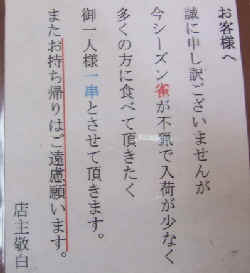 お客様へ
誠に申し訳ございませんが
今シーズン雀が不猟で入荷が少なく
多くの方に食べて頂きたく
御一人様一串とさせて頂きます。
またお持ち帰りはご遠慮願います。
店主敬白